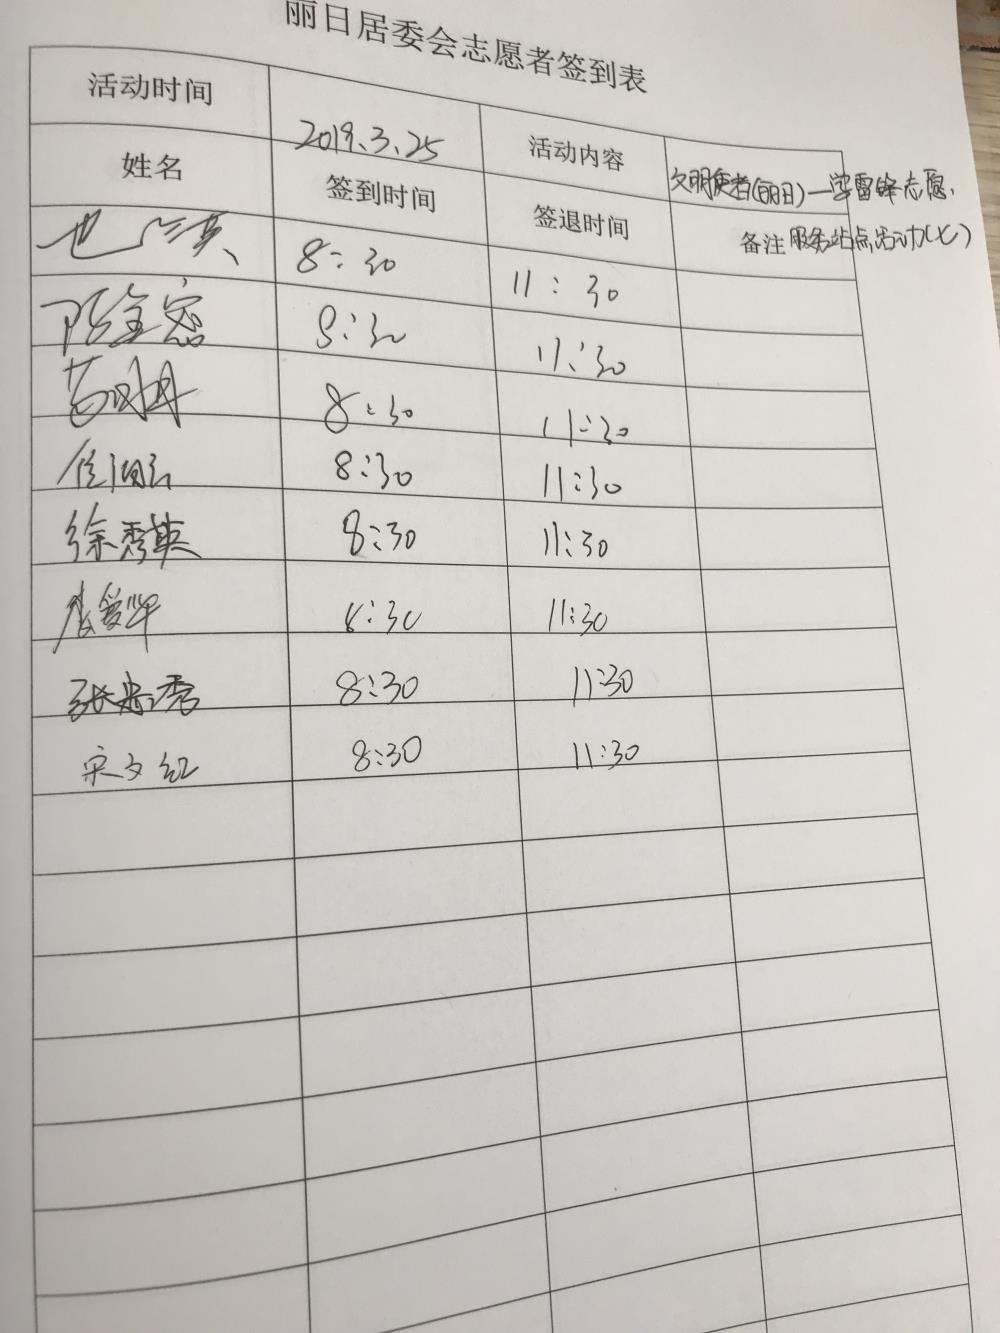 丽日居委会志愿者签到表
活动时间 2019.3.25 活动内容 文明使者(丽日)一学雷锋志愿
服务站点活动(七)
姓名 签到时间 签退时间 备注
8:30 11:30
陈金 8:30 11:30
8:30 11:30
8:30 11:30
徐秀英 8:30 11:30
爱华 8:30 11:30
张 秀 8:30 11:30
宋文红 8:30 11:30